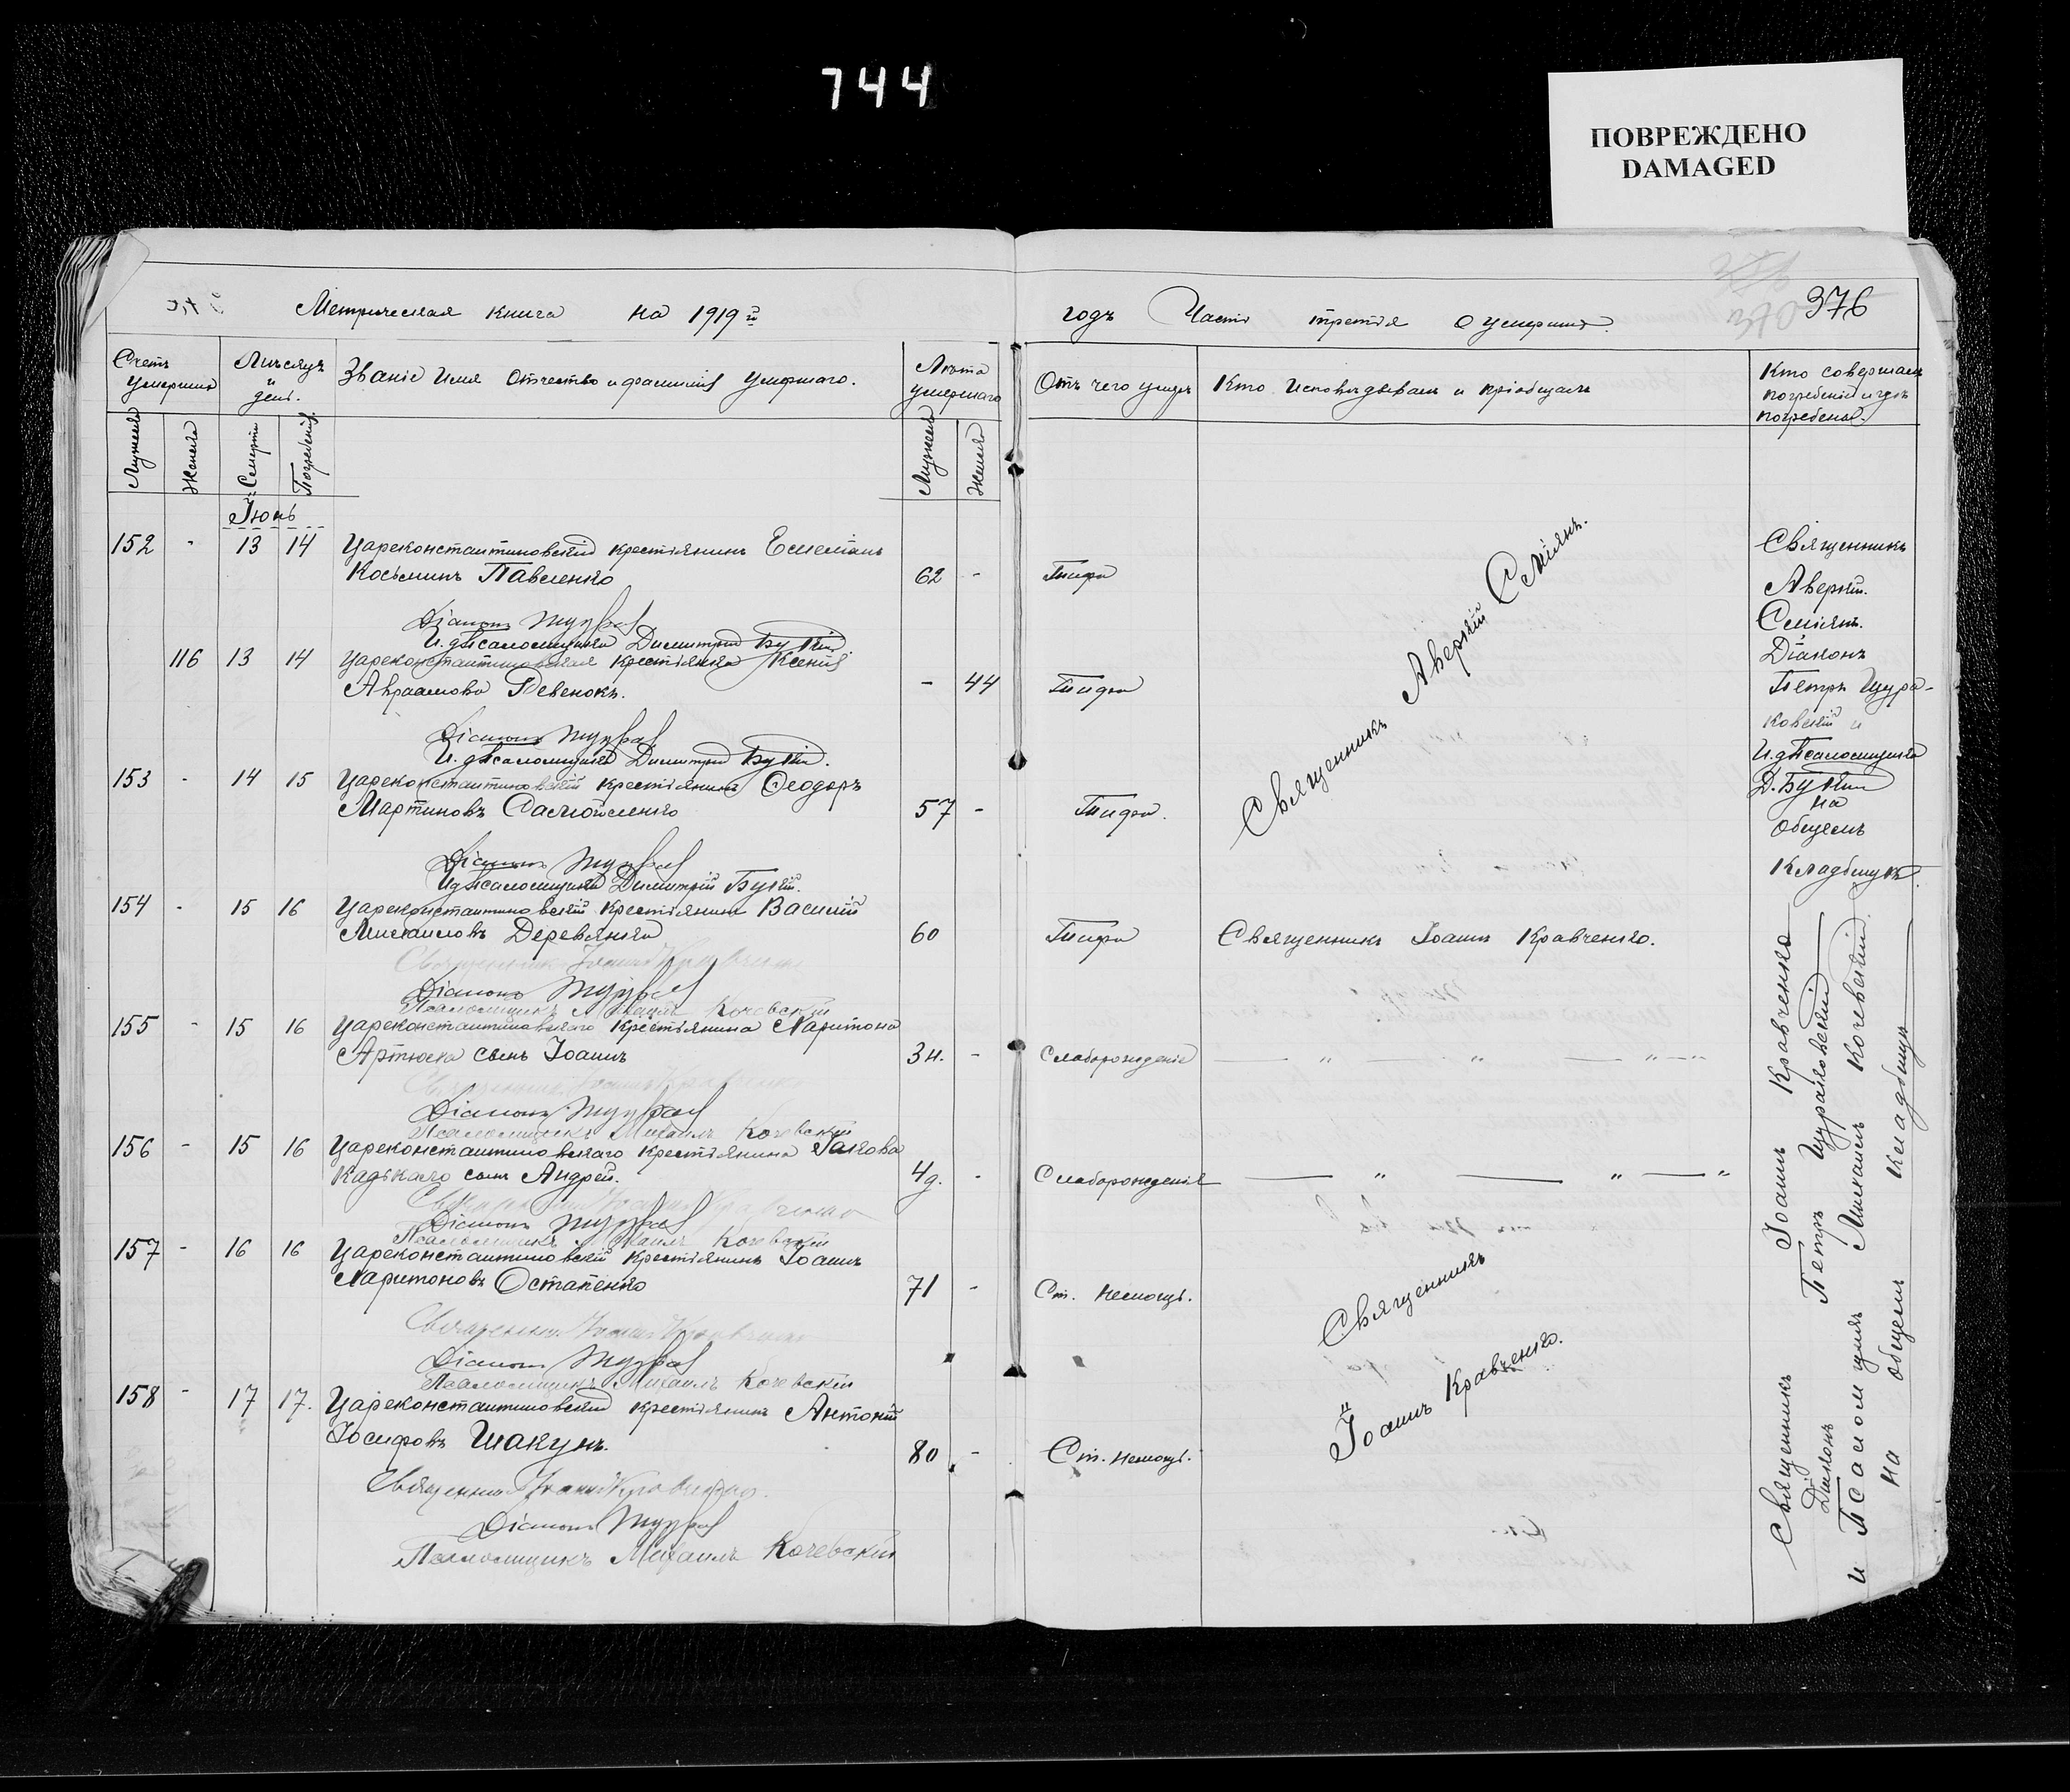 744
ПОВРЕЖДЕНО
DAMAGED
376
Метрическая книга на 1919 й
годъ Часть третья О умершихъ.
Счетъ умершихъ
Мѣсяцъ и день.
Званіе Имя Отчество и фамилія умершаго.
Лѣта умершаго
Отъ чего умеръ
Кто Исповѣдывалъ и пріобщалъ
Кто совершалъ погребеніе и гдѣ погребены.
Мужеска
Женска
Смерти
Погребенія
Мужеска
Женска
Іюнь
152 - 13 14 Цареконстантиновскій крестьянинъ Емеліанъ
Косьминъ Павленко 62 - Тифа
Діаконъ
И. д. Псаломщика Димитрій Буткій
116 13 14 Цареконстантиновская крестьянка Ксенія
Авраамова Ревенокъ. - 44 Тифа
Діаконъ
И. д. Псаломщика Димитрій Буткій.
153 - 14 15 Цареконстантиновскій крестьянинъ Ѳеодоръ
Мартиновъ Самойленко 57 - Тифа.
Діаконъ
И. д. Псаломщика Димитрій Буткій.
Священникъ Аверкій Сміянъ.
Священникъ
Аверкій
Сміянъ.
Діаконъ
Петръ Щура-
ковскій и
И. д. Псаломщика
Д. Буткій
на
общемъ
Кладбищѣ.
154 - 15 16 Цареконстантиновскій крестьянинъ Василій
Михаиловъ Деревянко 60 Тифа Священникъ Іоаннъ Кравченко.
Священникъ Іоаннъ Кравченко
Діаконъ
Псаломщикъ Михаилъ Кочевскій
155 - 15 16 Цареконстантиновскаго крестьянина Харитона
Артюха сынъ Іоаннъ 3н. - Слаборожденіе — " — " — " —
Священникъ Іоаннъ Кравченко
Діаконъ
Псаломщикъ Михаилъ Кочевскій
156 - 15 16 Цареконстантиновскаго крестьянина Іакова
Кадькало сынъ Андрей. 4д. - Слаборожденія — " — " — "
Священникъ Іоаннъ Кравченко
Діаконъ
Псаломщикъ Михаилъ Кочевскій
157 - 16 16 Цареконстантиновскій крестьянинъ Іоаннъ
Харитоновъ Остапенко 71 - Ст. немощь.
Священникъ Іоаннъ Кравченко
Діаконъ
Псаломщикъ Михаилъ Кочевскій
158 - 17 17. Цареконстантиновскій крестьянинъ Антоній
Іосифовъ Шакунъ. 80 - Ст. немощь.
Священникъ Іоаннъ Кравченко.
Діаконъ
Псаломщикъ Михаилъ Кочевскій
Священникъ
Іоаннъ Кравченко.
Священникъ Іоаннъ Кравченко
Діаконъ Петръ Щураковскій
и Псаломщикъ Михаилъ Кочевскій
на общемъ кладбищѣ